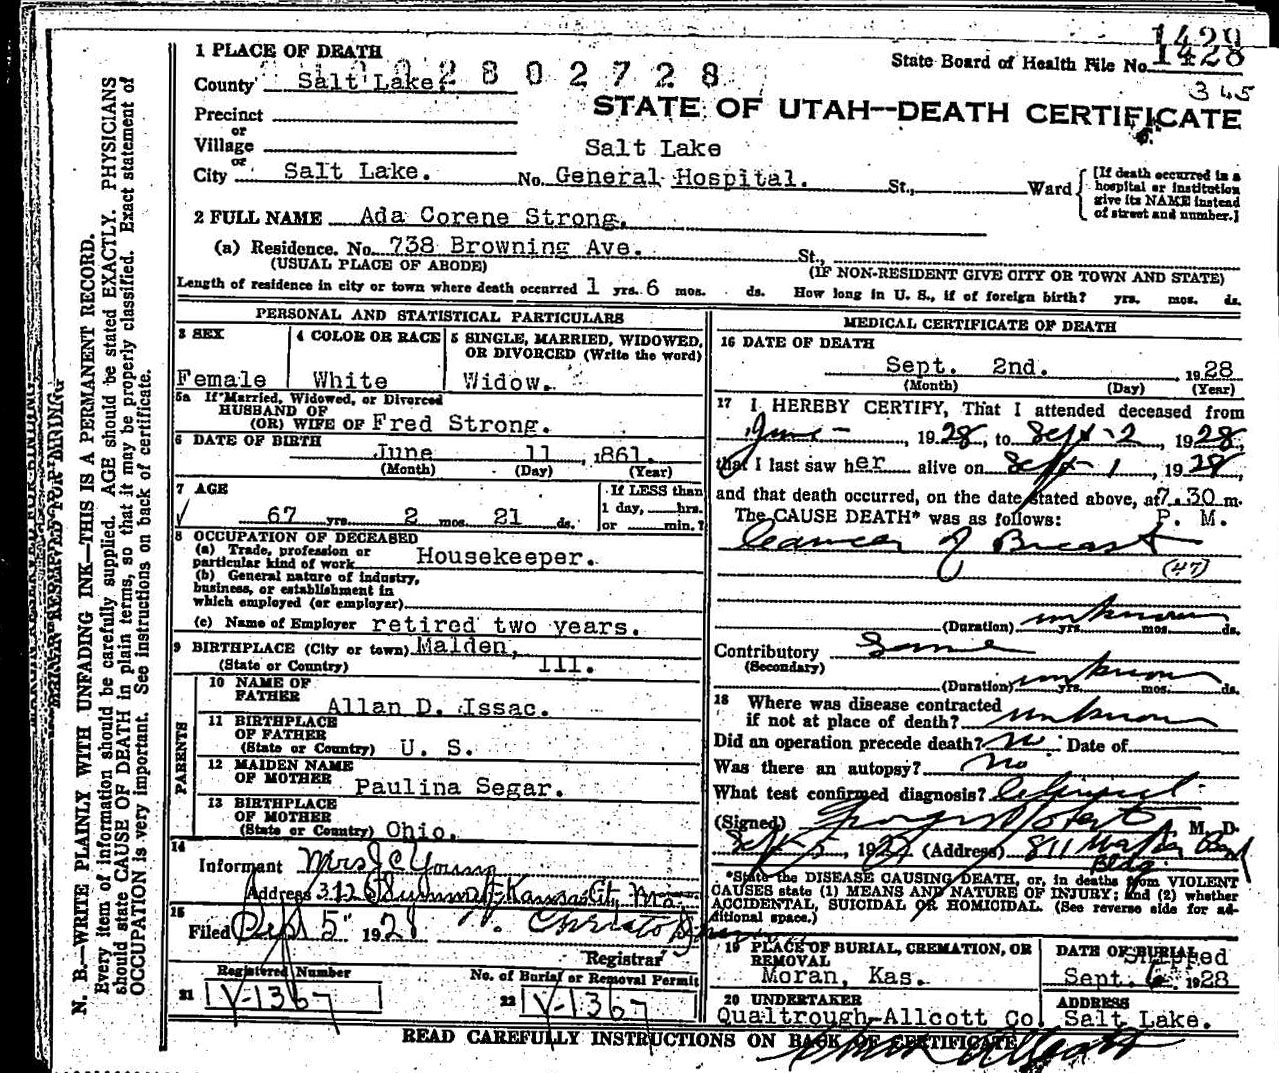 1429
1428
1 PLACE OF DEATH
2802728
State Board of Health File No.
County Salt Lake.
345
Precinct
STATE OF UTAH--DEATH CERTIFICATE
or
Village
Salt Lake
or
City Salt Lake. No. General Hospital. St., Ward
[If death occurred in a
hospital or institution
give its NAME instead
of street and number.]
2 FULL NAME Ada Corene Strong.
(a) Residence. No. 738 Browning Ave. St.,
(USUAL PLACE OF ABODE) (IF NON-RESIDENT GIVE CITY OR TOWN AND STATE)
Length of residence in city or town where death occurred 1 yrs. 6 mos. ds. How long in U. S., if of foreign birth? yrs. mos. ds.
PERSONAL AND STATISTICAL PARTICULARS
3 SEX
Female
4 COLOR OR RACE
White
5 SINGLE, MARRIED, WIDOWED,
OR DIVORCED (Write the word)
Widow.
5a If Married, Widowed, or Divorced
HUSBAND OF
(OR) WIFE OF Fred Strong.
6 DATE OF BIRTH
June 11, 1861.
(Month) (Day) (Year)
7 AGE
67 yrs. 2 mos. 21 ds.
If LESS than
1 day, hrs.
or min.?
8 OCCUPATION OF DECEASED
(a) Trade, profession or
particular kind of work Housekeeper.
(b) General nature of industry,
business, or establishment in
which employed (or employer)
(c) Name of Employer retired two years.
9 BIRTHPLACE (City or town) Malden,
(State or Country) Ill.
PARENTS
10 NAME OF
FATHER
Allan D. Issac.
11 BIRTHPLACE
OF FATHER
(State or Country) U. S.
12 MAIDEN NAME
OF MOTHER Paulina Segar.
13 BIRTHPLACE
OF MOTHER
(State or Country) Ohio.
14
Informant Mrs J C Young
Address 312 Kansas City Mo.
15
Filed Sept 5" 1928
Registrar
Registered Number
21 V-1367
No. of Burial or Removal Permit
22 V-1367
MEDICAL CERTIFICATE OF DEATH
16 DATE OF DEATH
Sept. 2nd. 1928
(Month) (Day) (Year)
17 I HEREBY CERTIFY, That I attended deceased from
June - , 1928, to Sept-2, 1928,
that I last saw her alive on Sept-1, 1928,
and that death occurred, on the date stated above, at 7.30 m.
The CAUSE DEATH* was as follows: P. M.
Cancer of Breast
(47)
(Duration) unknown yrs. mos. ds.
Contributory Same
(Secondary)
(Duration) unknown yrs. mos. ds.
18 Where was disease contracted
if not at place of death? unknown
Did an operation precede death? no Date of
Was there an autopsy? No
What test confirmed diagnosis? Clinical
(Signed) M. D.
Sept 5, 1928 (Address) 811
Bldg.
*State the DISEASE CAUSING DEATH, or, in deaths from VIOLENT
CAUSES state (1) MEANS AND NATURE OF INJURY; and (2) whether
ACCIDENTAL, SUICIDAL OR HOMICIDAL. (See reverse side for ad-
ditional space.)
19 PLACE OF BURIAL, CREMATION, OR
REMOVAL
Moran, Kas.
DATE OF BURIAL
Shipped
Sept. 6 1928
20 UNDERTAKER
Qualtrough-Allcott Co.
ADDRESS
Salt Lake.
READ CAREFULLY INSTRUCTIONS ON BACK OF CERTIFICATE
MARGIN RESERVED FOR BINDING
N. B.—WRITE PLAINLY WITH UNFADING INK—THIS IS A PERMANENT RECORD.
Every item of information should be carefully supplied. AGE should be stated EXACTLY. PHYSICIANS
should state CAUSE OF DEATH in plain terms, so that it may be properly classified. Exact statement of
OCCUPATION is very important. See instructions on back of certificate.